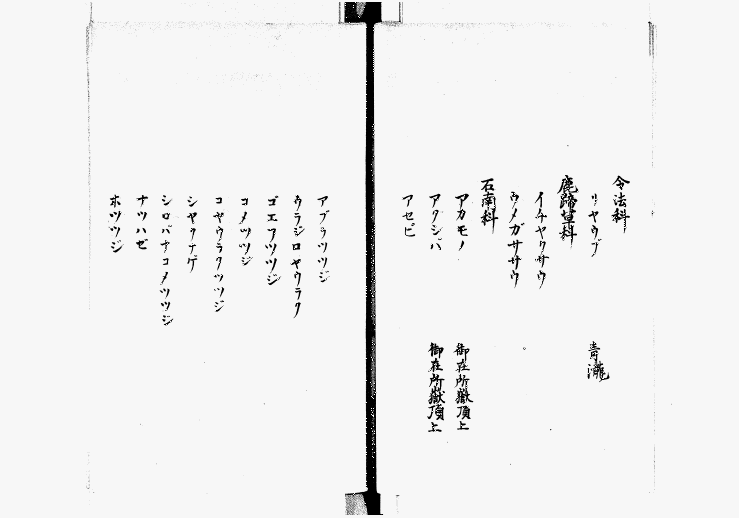 令法科
リヤウブ 青瀧
鹿蹄草科
イチヤクサウ
ウメガササウ
石南科
アカモノ 御在所嶽頂上
アクシバ 御在所嶽頂上
アセビ
アブラツツジ
ウラジロヤウラク
ゴエフツツジ
コメツツジ
コヤウラクツツジ
シヤクナゲ
シロバナコメツツジ
ナツハゼ
ホツツジ